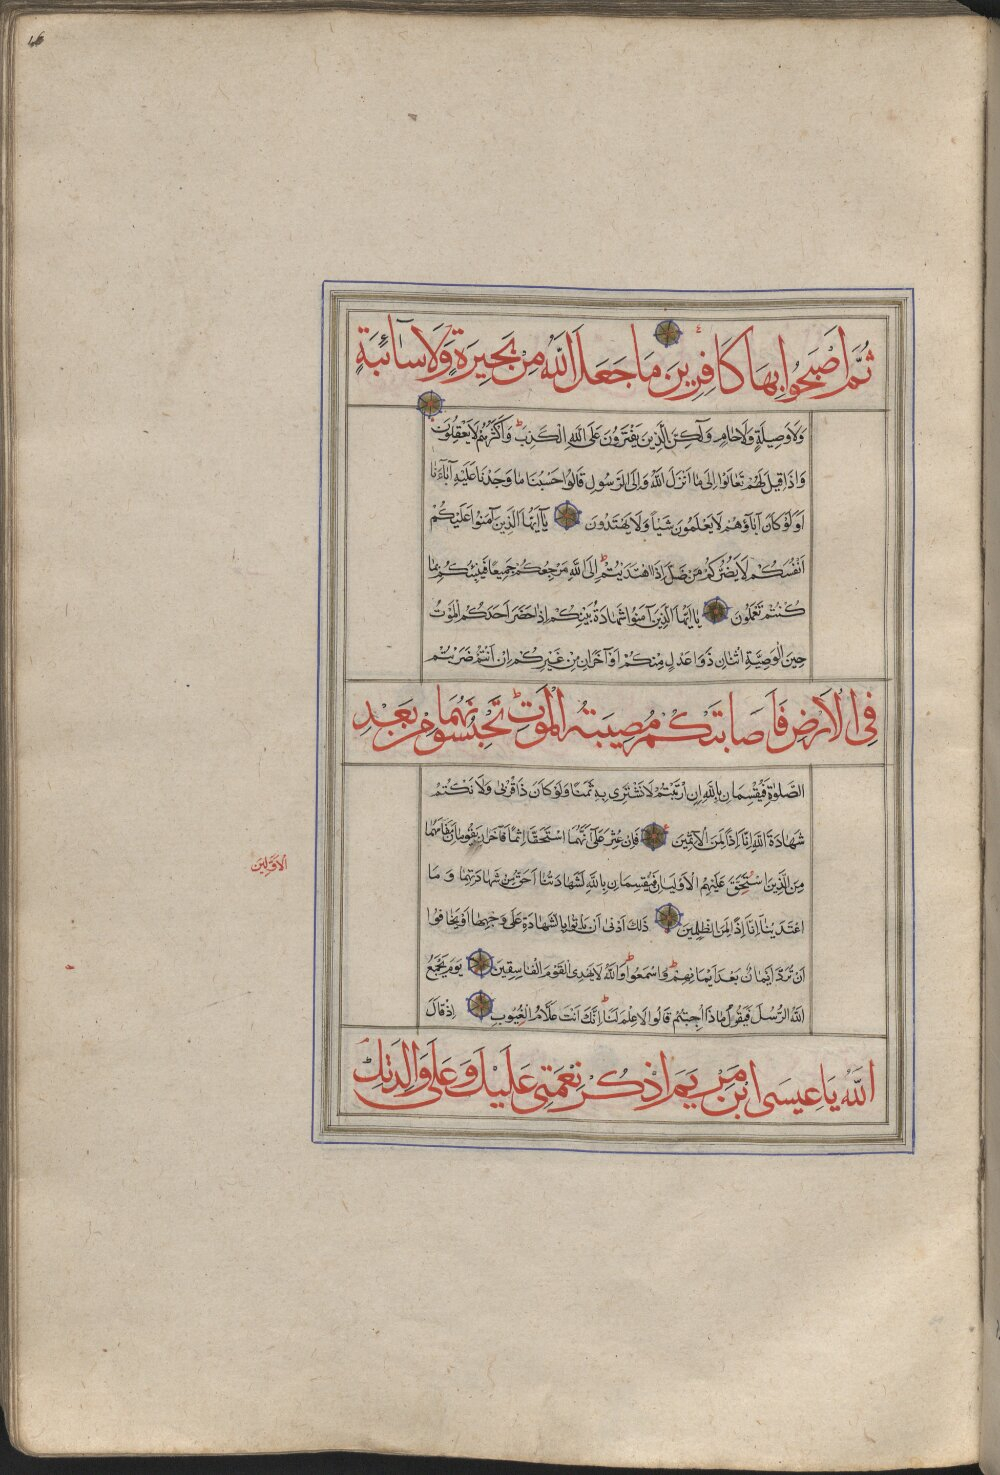 ثُمَّ اَصْبَحُوا بِهَا كَافِرِينَ مَا جَعَلَ اللَّهُ مِنْ بَحِيرَةٍ وَلَا سَآئِبَةٍ
وَلَا وَصِيلَةٍ وَلَا حَامٍ وَلٰكِنَّ الَّذِينَ يَفْتَرُونَ عَلَى اللَّهِ الْكَذِبَ وَاَكْثَرُهُمْ لَا يَعْقِلُونَ
وَاِذَا قِيلَ لَهُمْ تَعَالَوْا اِلَى مَا اَنْزَلَ اللَّهُ وَاِلَى الرَّسُولِ قَالُوا حَسْبُنَا مَا وَجَدْنَا عَلَيْهِ آبَاءَنَا
اَوَلَوْ كَانَ آبَاؤُهُمْ لَا يَعْلَمُونَ شَيْاً وَلَا يَهْتَدُونَ يَآ اَيُّهَا الَّذِينَ آمَنُوا عَلَيْكُمْ
اَنْفُسَكُمْ لَا يَضُرُّكُمْ مَنْ ضَلَّ اِذَا اهْتَدَيْتُمْ اِلَى اللَّهِ مَرْجِعُكُمْ جَمِيعًا فَيُنَبِّئُكُمْ بِمَا
كُنْتُمْ تَعْمَلُونَ يَا اَيُّهَا الَّذِينَ آمَنُوا شَهَادَةُ بَيْنِكُمْ اِذَا حَضَرَ اَحَدَكُمُ الْمَوْتُ
حِينَ الْوَصِيَّةِ اثْنَانِ ذَوَا عَدْلٍ مِنْكُمْ اَوْ آخَرَانِ مِنْ غَيْرِكُمْ اِنْ اَنْتُمْ ضَرَبْتُمْ
فِى الْاَرْضِ فَاَصَابَتْكُمْ مُصِيبَةُ الْمَوْتِ تَحْبِسُونَهُمَا مِنْ بَعْدِ
الصَّلٰوةِ فَيُقْسِمَانِ بِاللَّهِ اِنِ ارْتَبْتُمْ لَا نَشْتَرِى بِهِ ثَمَنًا وَلَوْ كَانَ ذَا قُرْبٰى وَلَا نَكْتُمُ
شَهَادَةَ اللَّهِ اِنَّا اِذًا لَمِنَ الْآثِمِينَ فَاِنْ عُثِرَ عَلَى اَنَّهُمَا اسْتَحَقَّا اِثْمًا فَآخَرَانِ يَقُومَانِ مَقَامَهُمَا
مِنَ الَّذِينَ اسْتُحِقَّ عَلَيْهِمُ الْاَوْلَيَانِ فَيُقْسِمَانِ بِاللَّهِ لَشَهَادَتُنَا اَحَقُّ مِنْ شَهَادَتِهِمَا وَمَا
اعْتَدَيْنَا اِنَّا اِذًا لَمِنَ الظَّالِمِينَ ذٰلِكَ اَدْنٰى اَنْ يَاْتُوا بِالشَّهَادَةِ عَلَى وَجْهِهَا اَوْ يَخَافُوا
اَنْ تُرَدَّ اَيْمَانٌ بَعْدَ اَيْمَانِهِمْ وَاسْمَعُوا وَاللَّهُ لَا يَهْدِى الْقَوْمَ الْفَاسِقِينَ يَوْمَ يَجْمَعُ
اللَّهُ الرُّسُلَ فَيَقُولُ مَاذَا اُجِبْتُمْ قَالُوا لَا عِلْمَ لَنَا اِنَّكَ اَنْتَ عَلَّامُ الْغُيُوبِ اِذْ قَالَ
اللَّهُ يَا عِيسَى ابْنَ مَرْيَمَ اذْكُرْ نِعْمَتِى عَلَيْكَ وَعَلَى وَالِدَتِكَ
الْاَوَّلِينَ